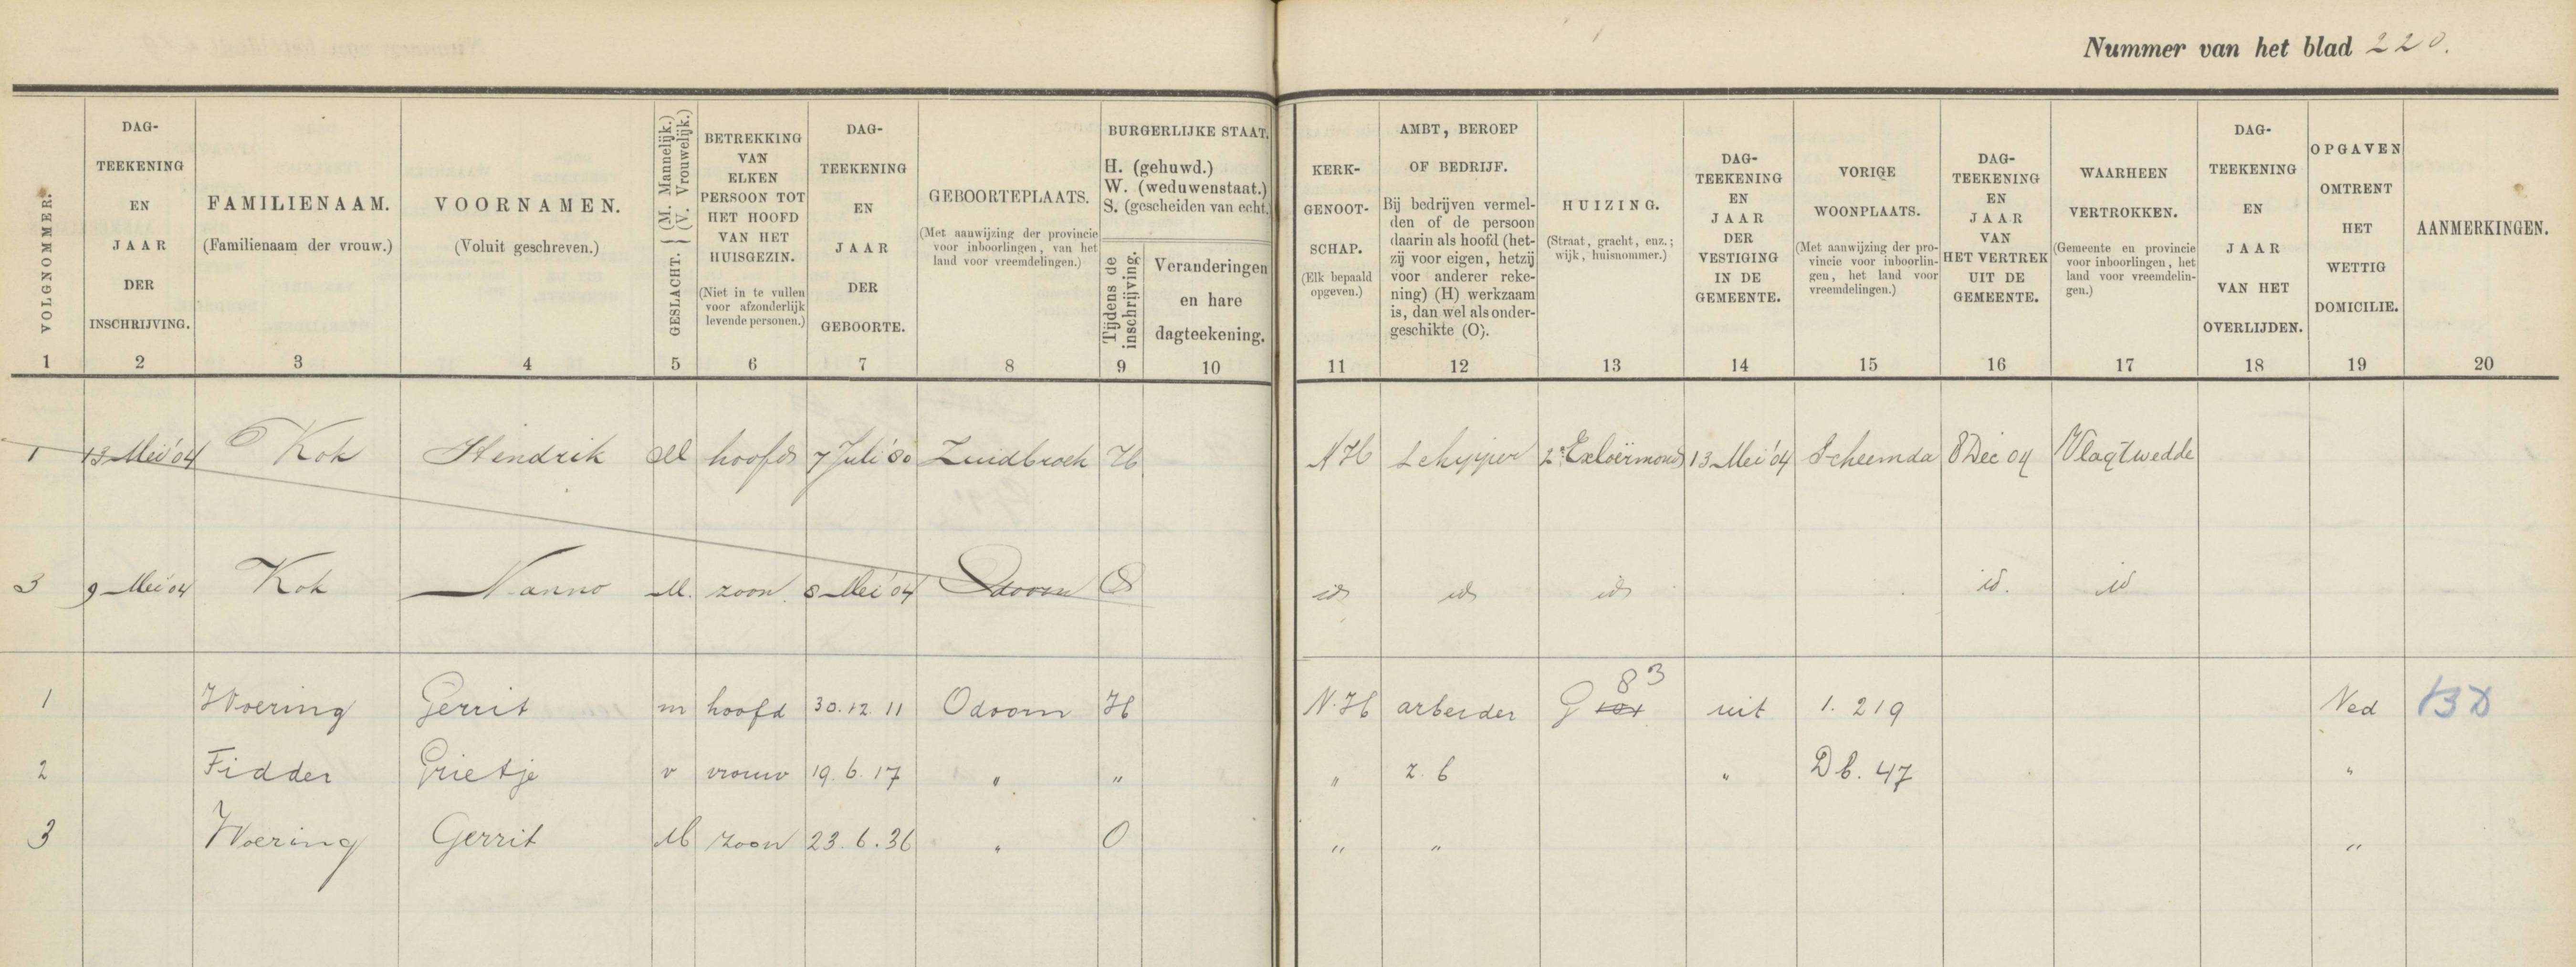 Nummer van het blad 220.
VOLGNOMMER.
DAG-
TEEKENING
EN
JAAR
DER
INSCHRIJVING.
FAMILIENAAM.
(Familienaam der vrouw.)
VOORNAMEN.
(Voluit geschreven.)
GESLACHT. { (M. Mannelijk.)
(V. Vrouwelijk.)
BETREKKING
VAN
ELKEN
PERSOON TOT
HET HOOFD
VAN HET
HUISGEZIN.
(Niet in te vullen
voor afzonderlijk
levende personen.)
DAG-
TEEKENING
EN
JAAR
DER
GEBOORTE.
GEBOORTEPLAATS.
(Met aanwijzing der provincie
voor inboorlingen, van het
land voor vreemdelingen.)
BURGERLIJKE STAAT.
H. (gehuwd.)
W. (weduwenstaat.)
S. (gescheiden van echt.)
Tijdens de
inschrijving.
Veranderingen
en hare
dagteekening.
KERK-
GENOOT-
SCHAP.
(Elk bepaald
opgeven.)
AMBT, BEROEP
OF BEDRIJF.
Bij bedrijven vermel-
den of de persoon
daarin als hoofd (het-
zij voor eigen, hetzij
voor anderer reke-
ning) (H) werkzaam
is, dan wel als onder-
geschikte (O).
HUIZING.
(Straat, gracht, enz.;
wijk, huisnommer.)
DAG-
TEEKENING
EN
JAAR
DER
VESTIGING
IN DE
GEMEENTE.
VORIGE
WOONPLAATS.
(Met aanwijzing der pro-
vincie voor inboorlin-
gen, het land voor
vreemdelingen.)
DAG-
TEEKENING
EN
JAAR
VAN
HET VERTREK
UIT DE
GEMEENTE.
WAARHEEN
VERTROKKEN.
(Gemeente en provincie
voor inboorlingen, het
land voor vreemdelin-
gen.)
DAG-
TEEKENING
EN
JAAR
VAN HET
OVERLIJDEN.
OPGAVEN
OMTRENT
HET
WETTIG
DOMICILIE.
AANMERKINGEN.
1 2 3 4 5 6 7 8 9 10 11 12 13 14 15 16 17 18 19 20
1 13 Mei '04 Kok Hendrik M hoofd 7 Juli '80 Zuidbroek H N H Schipper 2e Exloërmond 13 Mei '04 Scheemda 8 Dec 04 Vlagtwedde
3 9 Mei 04 Kok Nanno M. zoon 8 Mei '04 Odoorn O id id id id. id
1 Woering Gerrit m hoofd 30.12.11 Odoorn H N.H arbeider G 101 83 uit 1. 219 Ned
2 Fidder Grietje v vrouw 19.6.17 " " " z.b " Db. 47 "
3 Woering Gerrit M zoon 23.6.36 " O " " "